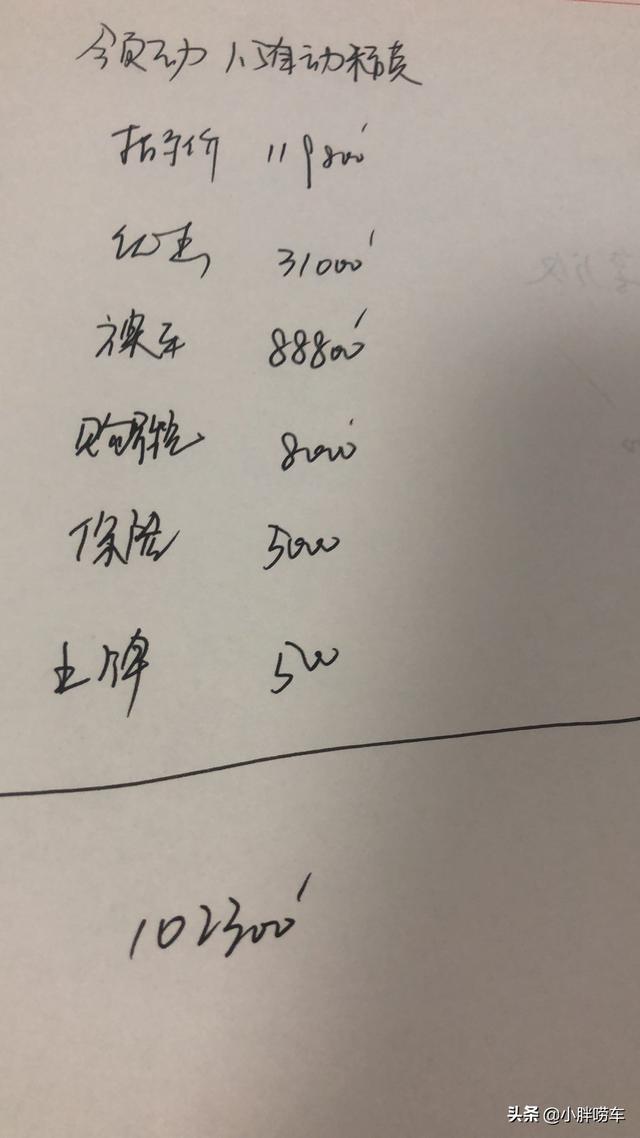 领动 1.5自动精英
指导价 119800
优惠 31000
裸车 88800
购置税 8000
保险 5000
上牌 500
102300
头条 @小胖唠车